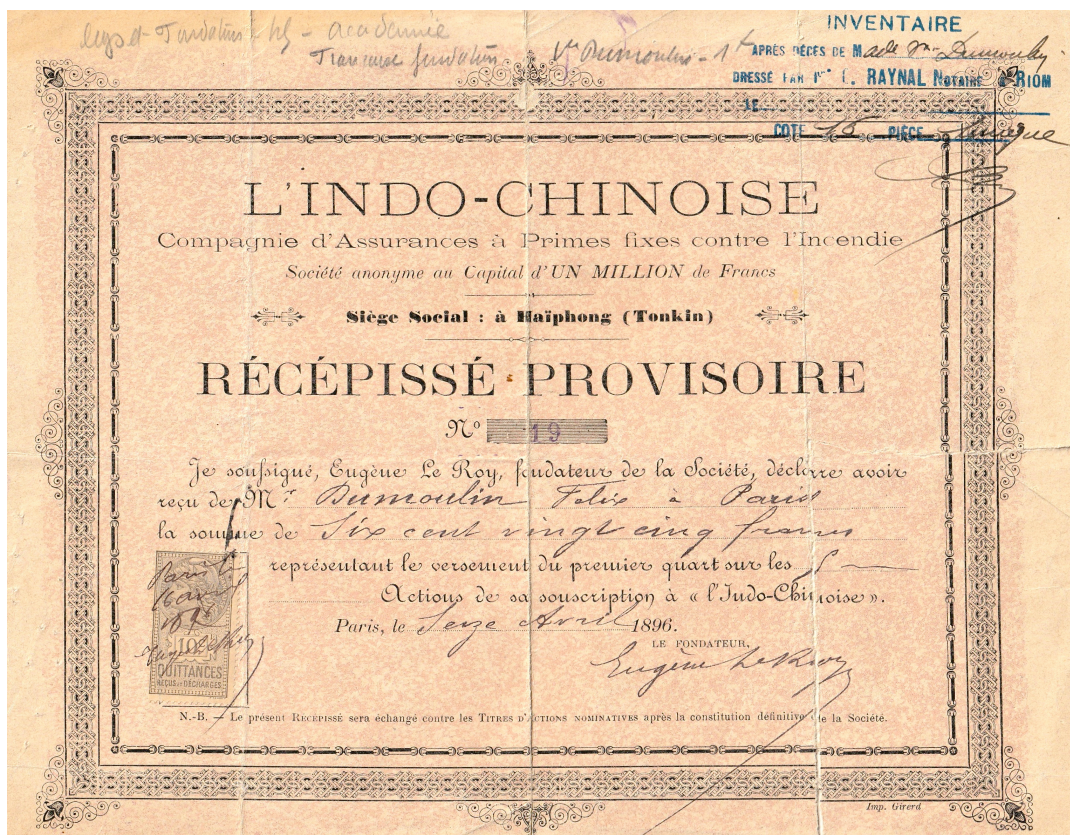 Legs et Fondations - Académie
fondation Vve Dumoulin - 1
INVENTAIRE
APRÈS DÉCÈS DE M Dumoulin
DRESSÉ PAR Me RAYNAL NOTAIRE A RIOM
LE
COTE 15 PIÈCE unique
L'INDO-CHINOISE
Compagnie d'Assurances à Primes fixes contre l'Incendie
Société anonyme au Capital d'UN MILLION de Francs
Siège Social : à Haïphong (Tonkin)
RÉCÉPISSÉ PROVISOIRE
No 19
Je soussigné, Eugène Le Roy, fondateur de la Société, déclare avoir
reçu de Mr Dumoulin Felix à Paris
la somme de Six cent vingt cinq francs
représentant le versement du premier quart sur les 5
Actions de sa souscription à « l'Indo-Chinoise ».
Paris, le Seize Avril 1896.
LE FONDATEUR,
Eugène Le Roy
Paris le
16 avril
1896
10c
Eugène Le Roy
QUITTANCES
REÇUS ET DÉCHARGES
N.-B. — Le présent RECEPISSÉ sera échangé contre les TITRES D'ACTIONS NOMINATIVES après la constitution définitive de la Société.
Imp. Girerd